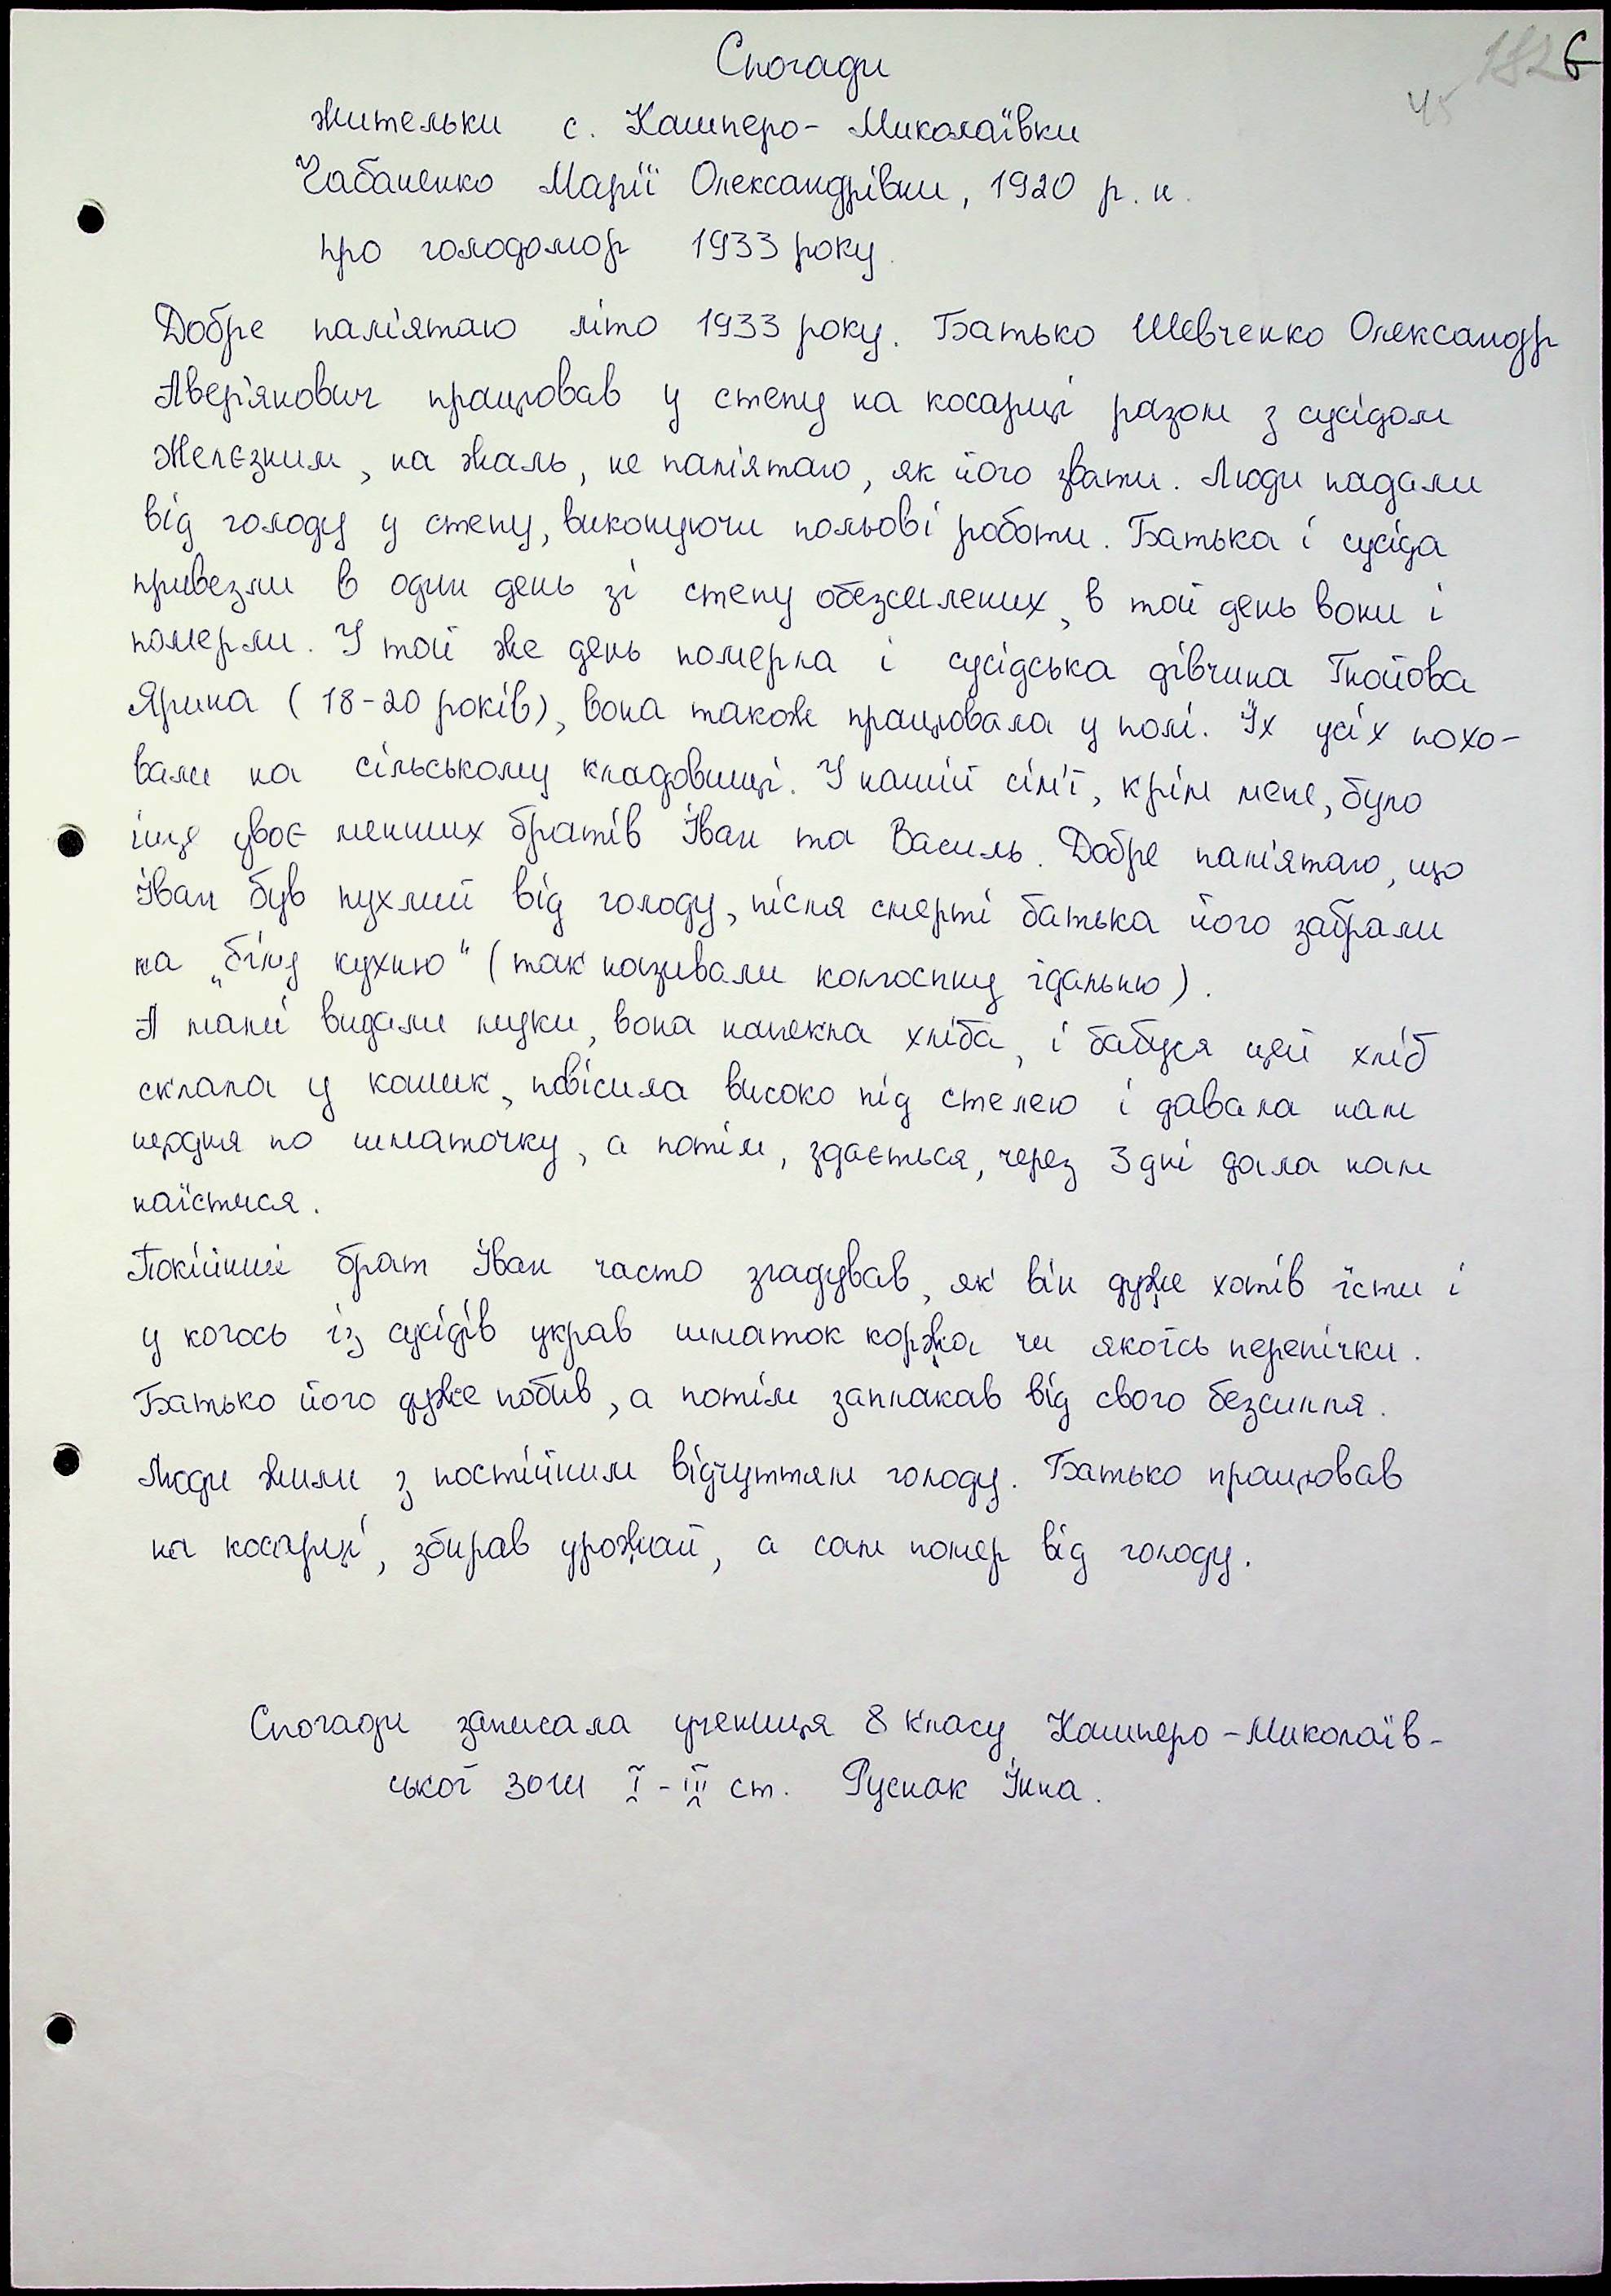 Спогади
жительки с. Кашперо-Миколаївки
Чабаненко Марії Олександрівни, 1920 р. н.
про голодомор 1933 року.
Добре пам'ятаю літо 1933 року. Батько Шевченко Олександр
Авер'янович працював у степу на косарці разом з сусідом
Желєзним, на жаль, не пам'ятаю, як його звати. Люди падали
від голоду у степу, виконуючи польові роботи. Батька і сусіда
привезли в один день зі степу обезсилених, в той день вони і
померли. У той же день померла і сусідська дівчина Гнойова
Ярина (18-20 років), вона також працювала у полі. Їх усіх похо-
вали на сільському кладовищі. У нашій сім'ї, крім мене, було
іще двоє менших братів Іван та Василь. Добре пам'ятаю, що
Іван був пухлий від голоду, після смерті батька його забрали
на „білу кухню" (так називали колгоспну їдальню).
А мамі видали муки, вона напекла хліба, і бабуся цей хліб
склала у кошик, повісила високо під стелею і давала нам
щодня по шматочку, а потім, здається, через 3 дні дала нам
наїстися.
Покійний брат Іван часто згадував, як він дуже хотів їсти і
у когось із сусідів украв шматок коржа чи якоїсь перепічки.
Батько його дуже побив, а потім заплакав від свого безсилля.
Люди жили з постійним відчуттям голоду. Батько працював
на косарці, збирав урожай, а сам помер від голоду.
Спогади записала учениця 8 класу Кашперо-Миколаїв-
ської ЗОШ І-ІІІ ст. Руснак Інна.